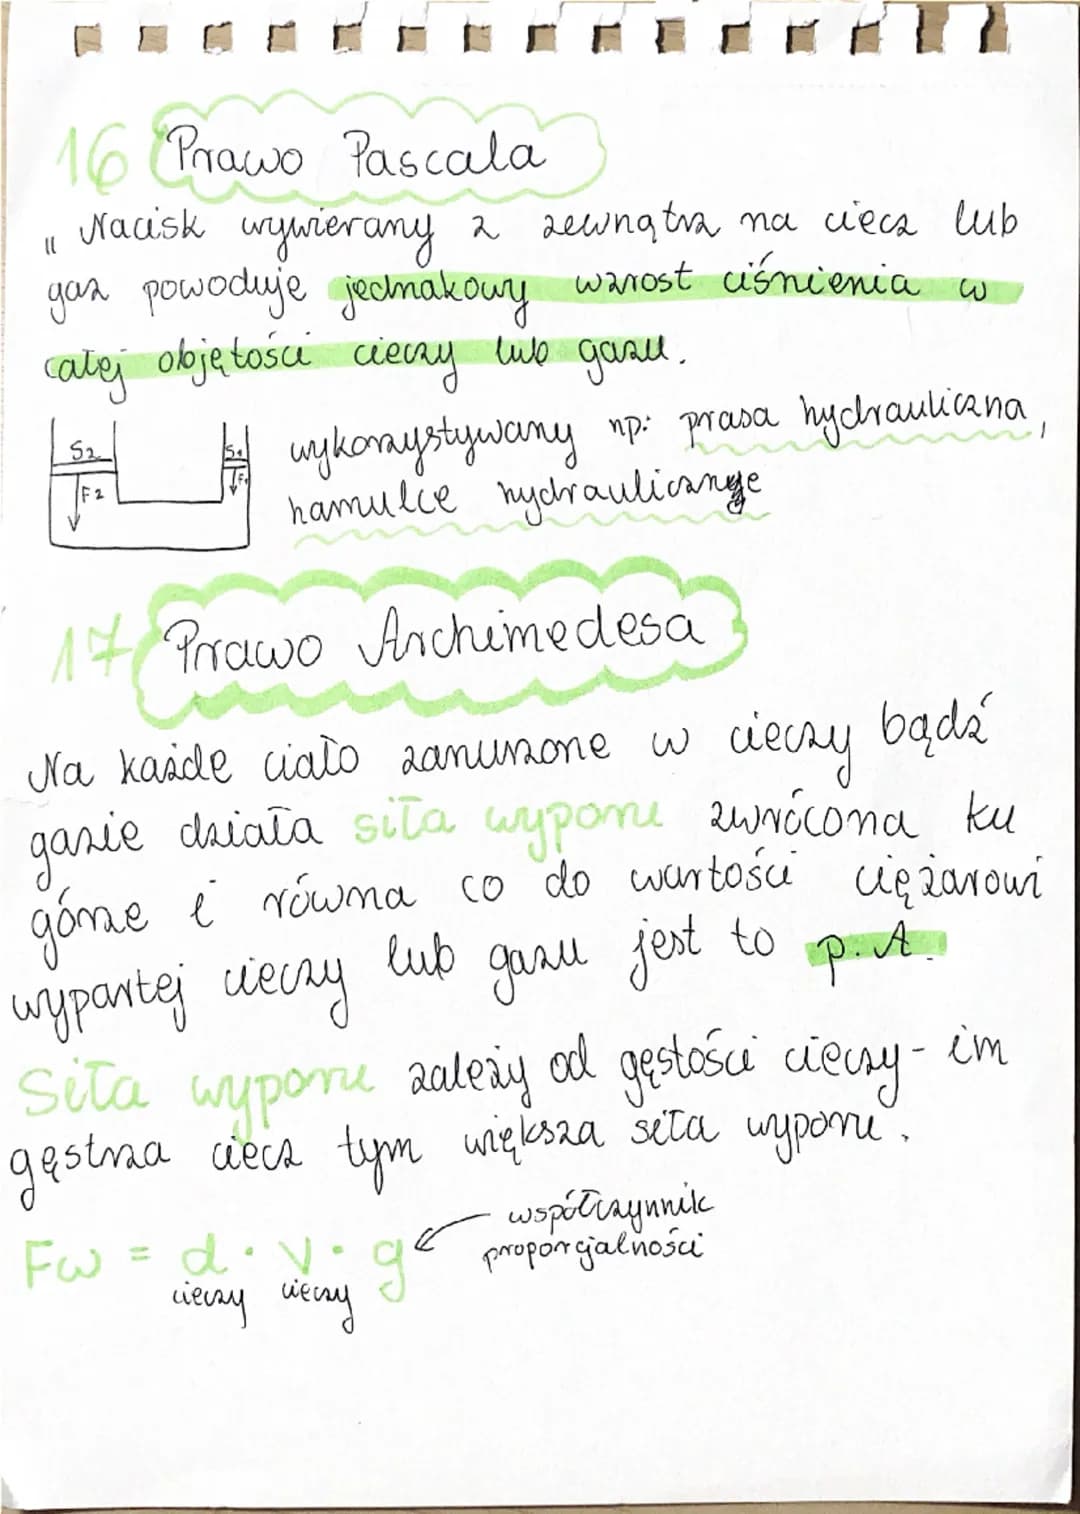 16 Prawo Pascala
„Nacisk wywierany z zewnątrz na ciecz lub
gaz powoduje jednakowy wzrost ciśnienia w
całej objętości cieczy lub gazu.
S2 S1
F2 F1
wykorzystywany np: prasa hydrauliczna,
hamulce hydrauliczne
17 Prawo Archimedesa
Na każde ciało zanurzone w cieczy bądź
gazie działa siła wyporu zwrócona ku
górze i równa co do wartości ciężarowi
wypartej cieczy lub gazu jest to p.A.
Siła wyporu zależy od gęstości cieczy - im
gęstrza ciecz tym większa siła wyporu.
współczynnik
proporcjalności
Fw = d · V · g
cieczy cieczy